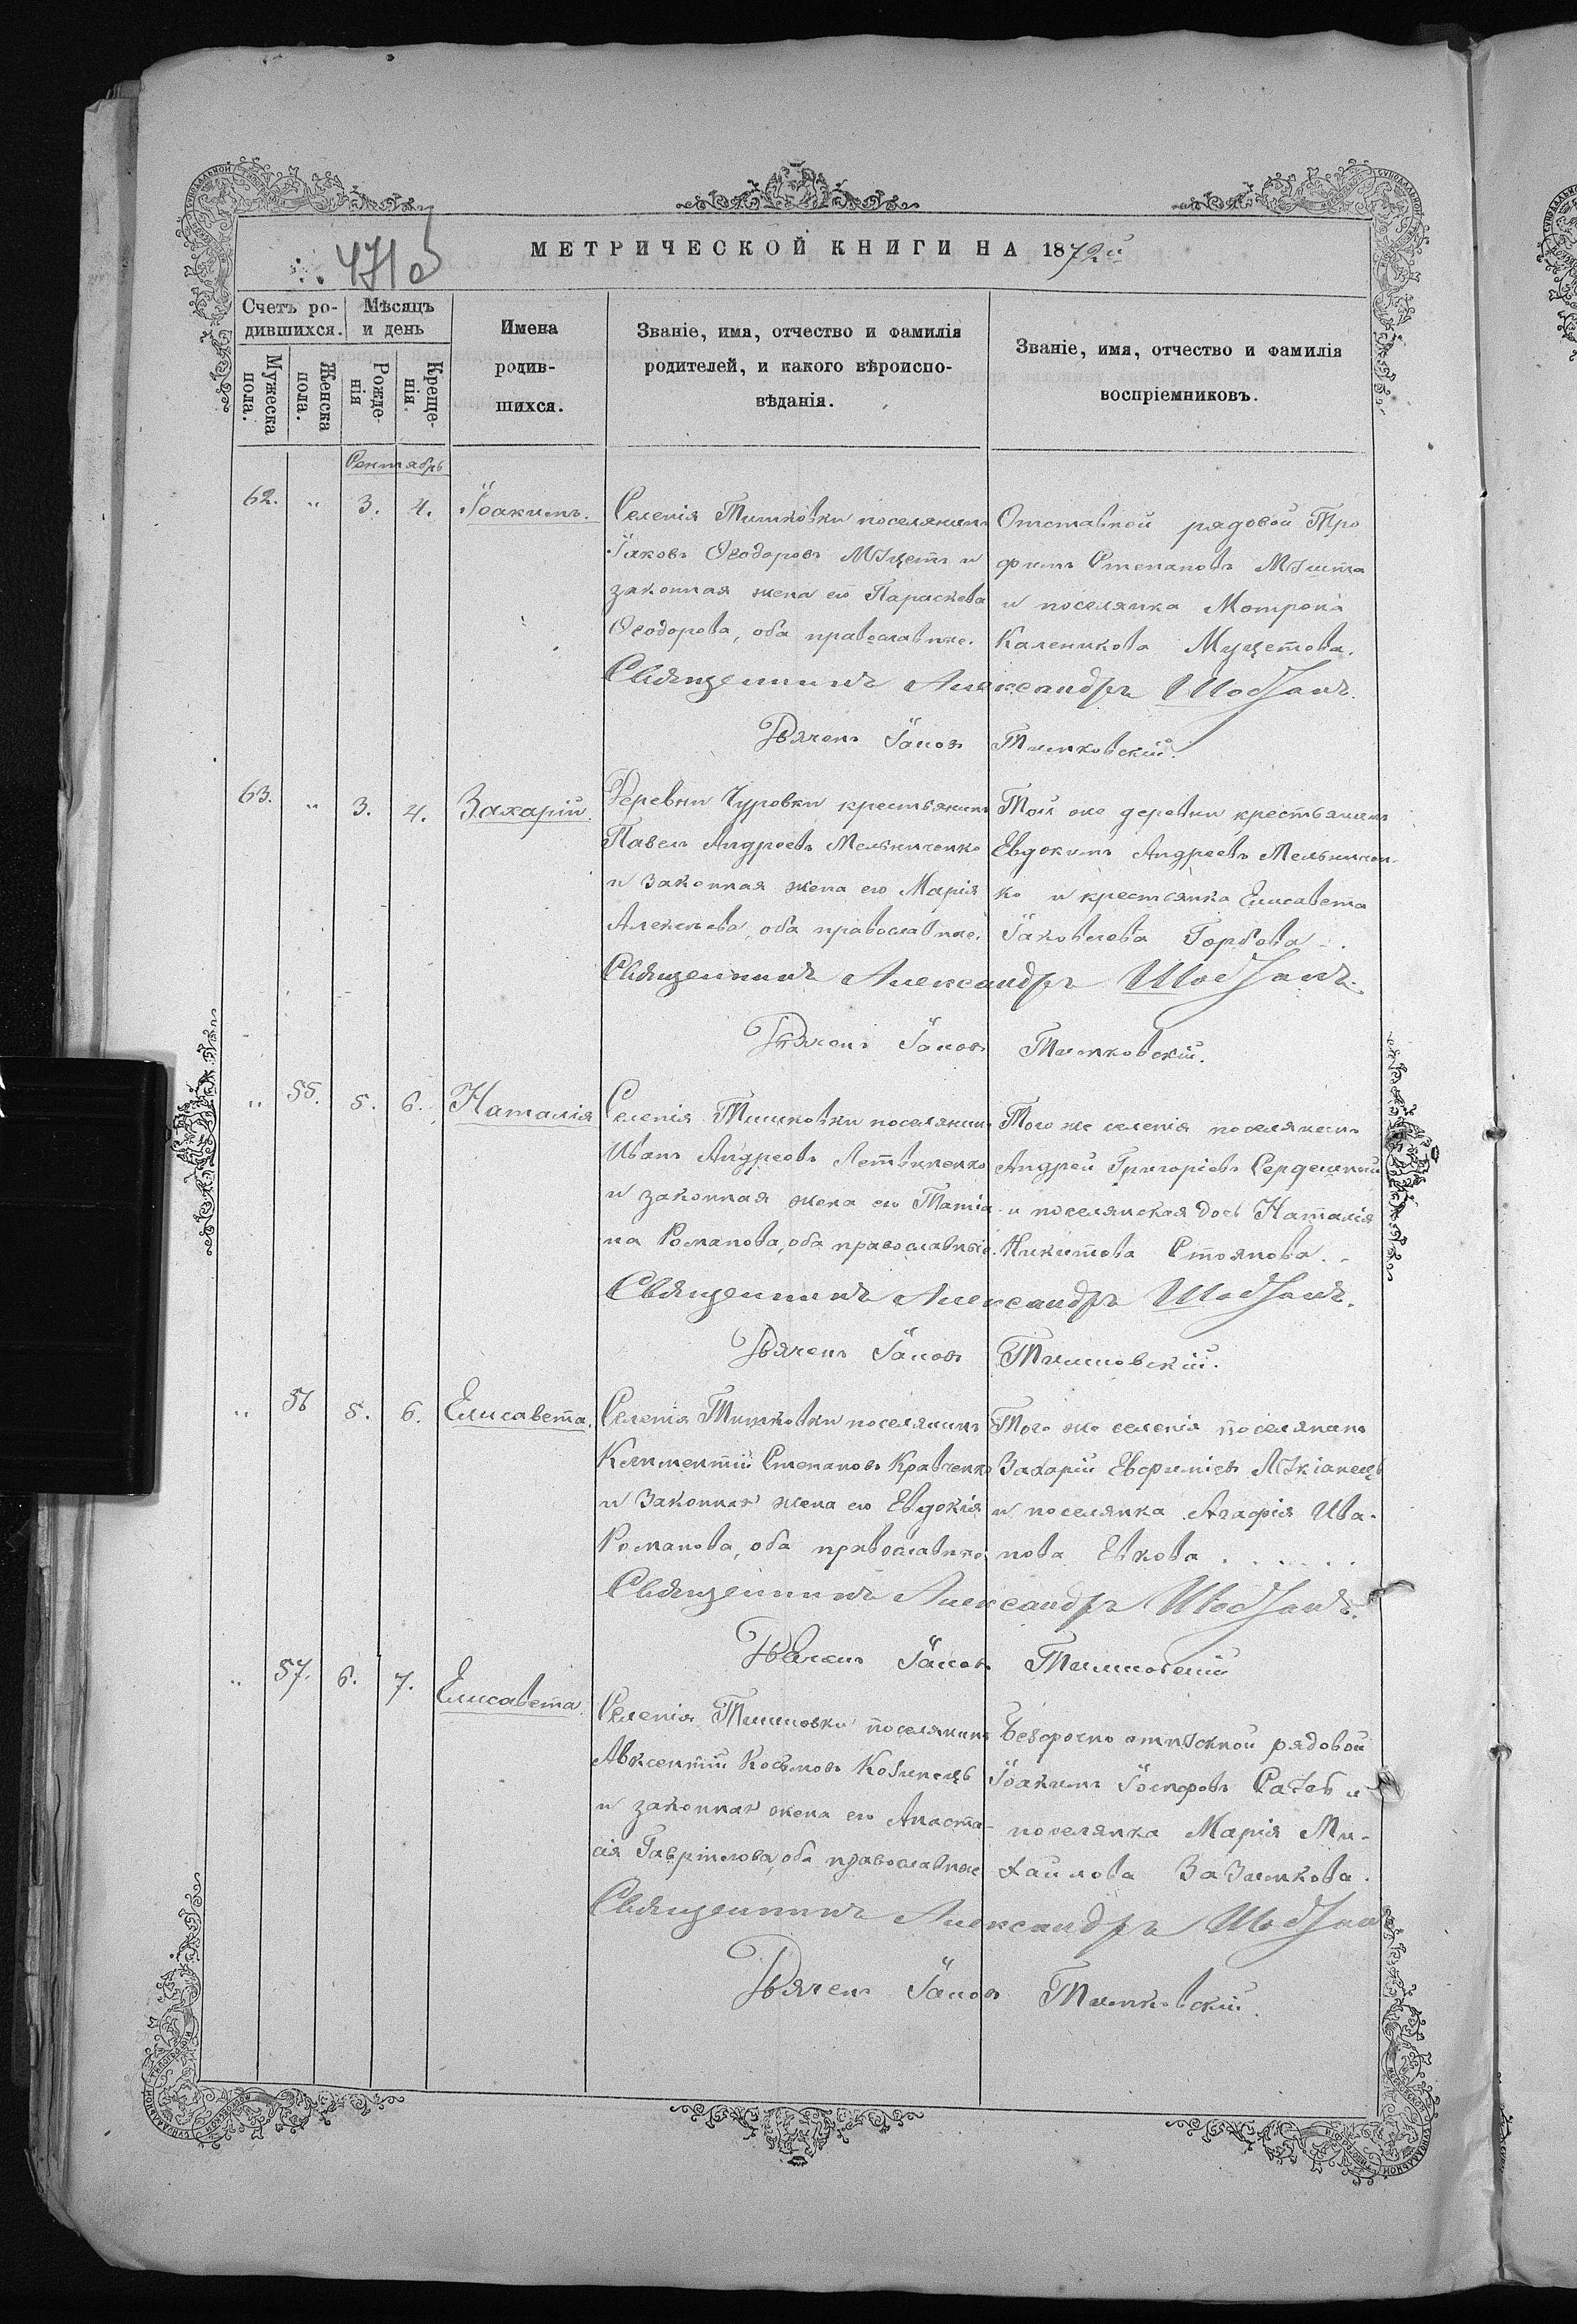 МЕТРИЧЕСКОЙ КНИГИ НА 1872й
Счетъ ро-
дившихся.
Мѣсяцъ
и день
Имена
родив-
шихся.
Званіе, имя, отчество и фамилія
родителей, и какого вѣроиспо-
вѣданія.
Званіе, имя, отчество и фамилія
воспріемниковъ.
Мужеска
пола.
Женска
пола.
Рожде-
нія
Креще-
нія.
Сентябрь
62. " 3. 4. Іоакимъ.
Селенія Тишковки поселянинъ
Іаковъ Ѳеодоровъ Муцетъ и
законная жена его Параскева
Ѳеодорова, оба православные.
Отставной рядовой Тро
фимъ Степановъ
и поселянка Мотрона
Каленикова Муцетова.
Священникъ Александръ
Дьячекъ Іаковъ Тишковскій.
63. " 3. 4. Захарій.
Деревни Чуровки крестьянинъ
Павелъ Андреевъ Мельниченко
и законная жена его Марія
Алексѣева, оба православные.
Той же деревни крестьянинъ
Евдокимъ Андреевъ Мельничен-
ко и крестьянка Елисавета
Іаковлева Горбова.
Священникъ Александръ
Дьячекъ Іаковъ Тишковскій.
" 55. 5. 6. Наталія
Селенія Тишковки поселянинъ
Иванъ Андреевъ Летвиненко
и законная жена его Татіа-
на Романова, оба православные.
Того же селенія поселянинъ
Андрей Григоріевъ
и поселянская дочь Наталія
Никитова Стоянова.
Священникъ Александръ
Дьячекъ Іаковъ Тишковскій.
" 56 5. 6. Елисавета.
Селенія Тишковки поселянинъ
Климентій Степановъ Кравченко
и законная жена его Евдокія
Романова, оба православные
Того же селенія поселянинъ
Захарій Евфиміевъ Лукіанецъ
и поселянка Агафія Ива-
нова Евкова
Священникъ Александръ
Дьячекъ Іаковъ Тишковскій
" 57. 6. 7. Елисавета.
Селенія Тишковки поселянинъ
Авксентій Косьмовъ Козинецъ
и законная жена его Анаста-
сія Гавріилова, оба православные
Безсрочно отпускной рядовой
Іоакимъ Іосифовъ и
поселянка Марія Ми-
хаилова Зазимкова.
Священникъ Александръ
Дьячекъ Іаковъ Тишковскій.